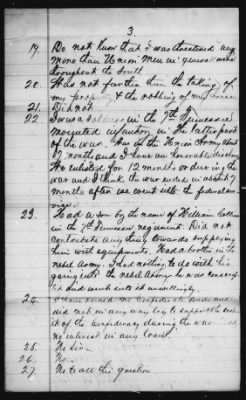 3
19. Do not know that I was threatened any
more than Union Men in general were
throughout the South.
20. Was not further than the taking of
my property & the robbing of my house
21. Did not
22. I was a soldier in the 7th Tennessee
mounted infantry in the latter part
of the war. Was in the Union Army about
7 months and I have an honorable discharge
He enlisted for 12 months or during the
war and I think the war ended in about
months after we went into the federal ser-
vice.
23. Had a son by the name of William
in the 7th Tennessee regiment. Did not
contribute any thing towards supplying
him with equipments. Had a brother in the
rebel army. I had nothing to do with his
going into the rebel army he was conscrip-
ted and went into it unwillingly.
24. I have owned no Confederate bonds and
did not in any way try to support the
of the Confederacy during the war. Had
no interest in any loans.
25. No Sir.
26. No.
27. No to all the question